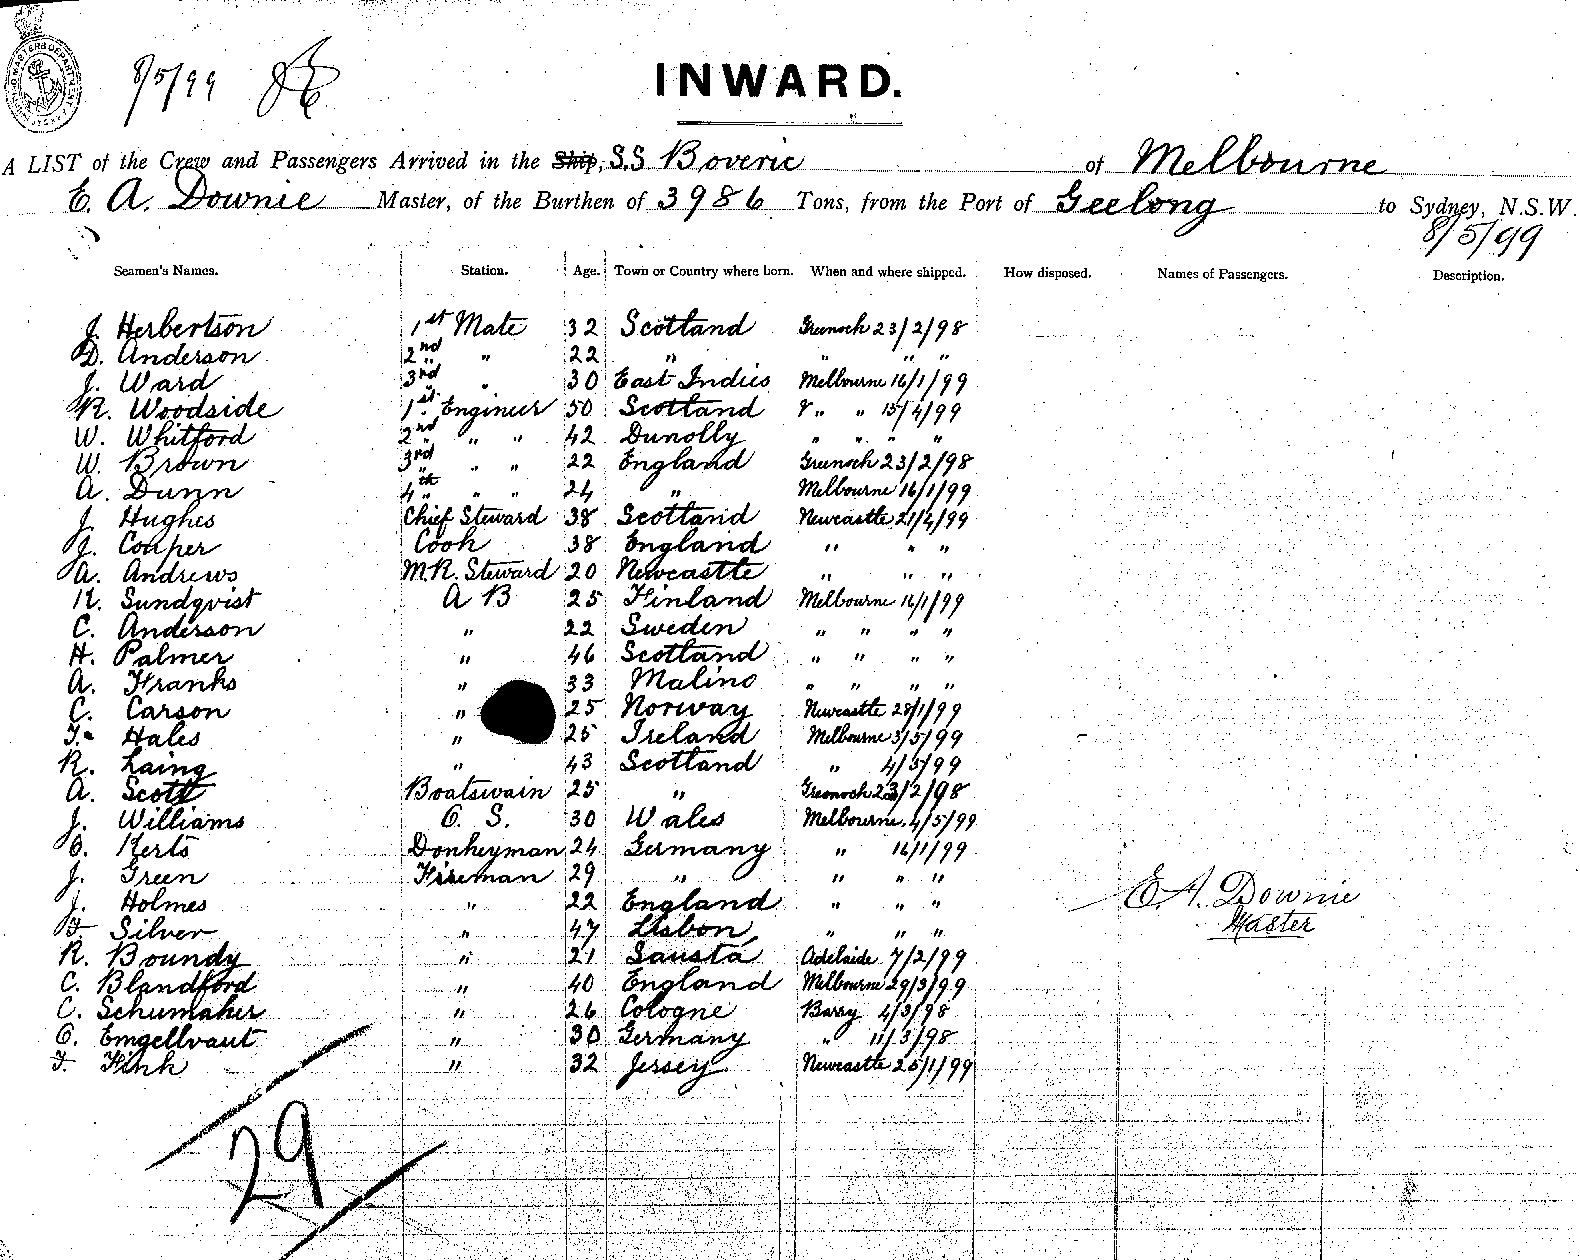 8/5/99
INWARD.
A LIST of the Crew and Passengers Arrived in the Ship, S.S Boveric of Melbourne
E. A. Downie Master, of the Burthen of 3986 Tons, from the Port of Geelong to Sydney, N.S.W.
8/5/99
Seamen's Names. Station. Age. Town or Country where born. When and where shipped. How disposed. Names of Passengers. Description.
J. Herbertson 1st Mate 32 Scotland Greenock 23/2/98
D. Anderson 2nd " 22 " " " "
J. Ward 3rd " 30 East Indies Melbourne 16/1/99
R. Woodside 1st. Engineer 50 Scotland " " 15/4/99
W. Whitford 2nd " " 42 Dunolly " " " "
W. Brown 3rd " " " 22 England Greenock 23/2/98
A. Dunn 4th " " " 24 " Melbourne 16/1/99
J. Hughes Chief Steward 38 Scotland Newcastle 21/4/99
J. Couper Cook 38 England " " "
A. Andrews M.R. Steward 20 Newcastle " " "
K. Sundqvist A B 25 Finland Melbourne 16/1/99
C. Anderson " 22 Sweden " " " "
H. Palmer " 46 Scotland " " " "
A. Franks " 33 Malino " " " "
C. Carson " 25 Norway Newcastle 28/1/99
Hales " 25 Ireland Melbourne 3/5/99
R. Laing " 43 Scotland " 4/5/99
A. Scott Boatswain 25 " Greenock 23/2/98
J. Williams O. S. 30 Wales Melbourne. 4/5/99
O. Kerts Donkeyman 24 Germany " 16/1/99
J. Green Fireman 29 " " " "
J. Holmes " 22 England " " "
F. Silver " 47 Lisbon " " "
R. Boundy " 21 Adelaide 7/2/99
C. Blandford " 40 England Melbourne 29/3/99
C. Schumaker " 26 Cologne Barry 4/3/98
O. Emgellvaut " 30 Germany " 11/3/98
F. Fink " 32 Jersey Newcastle 25/1/99
E. A. Downie
Master
29